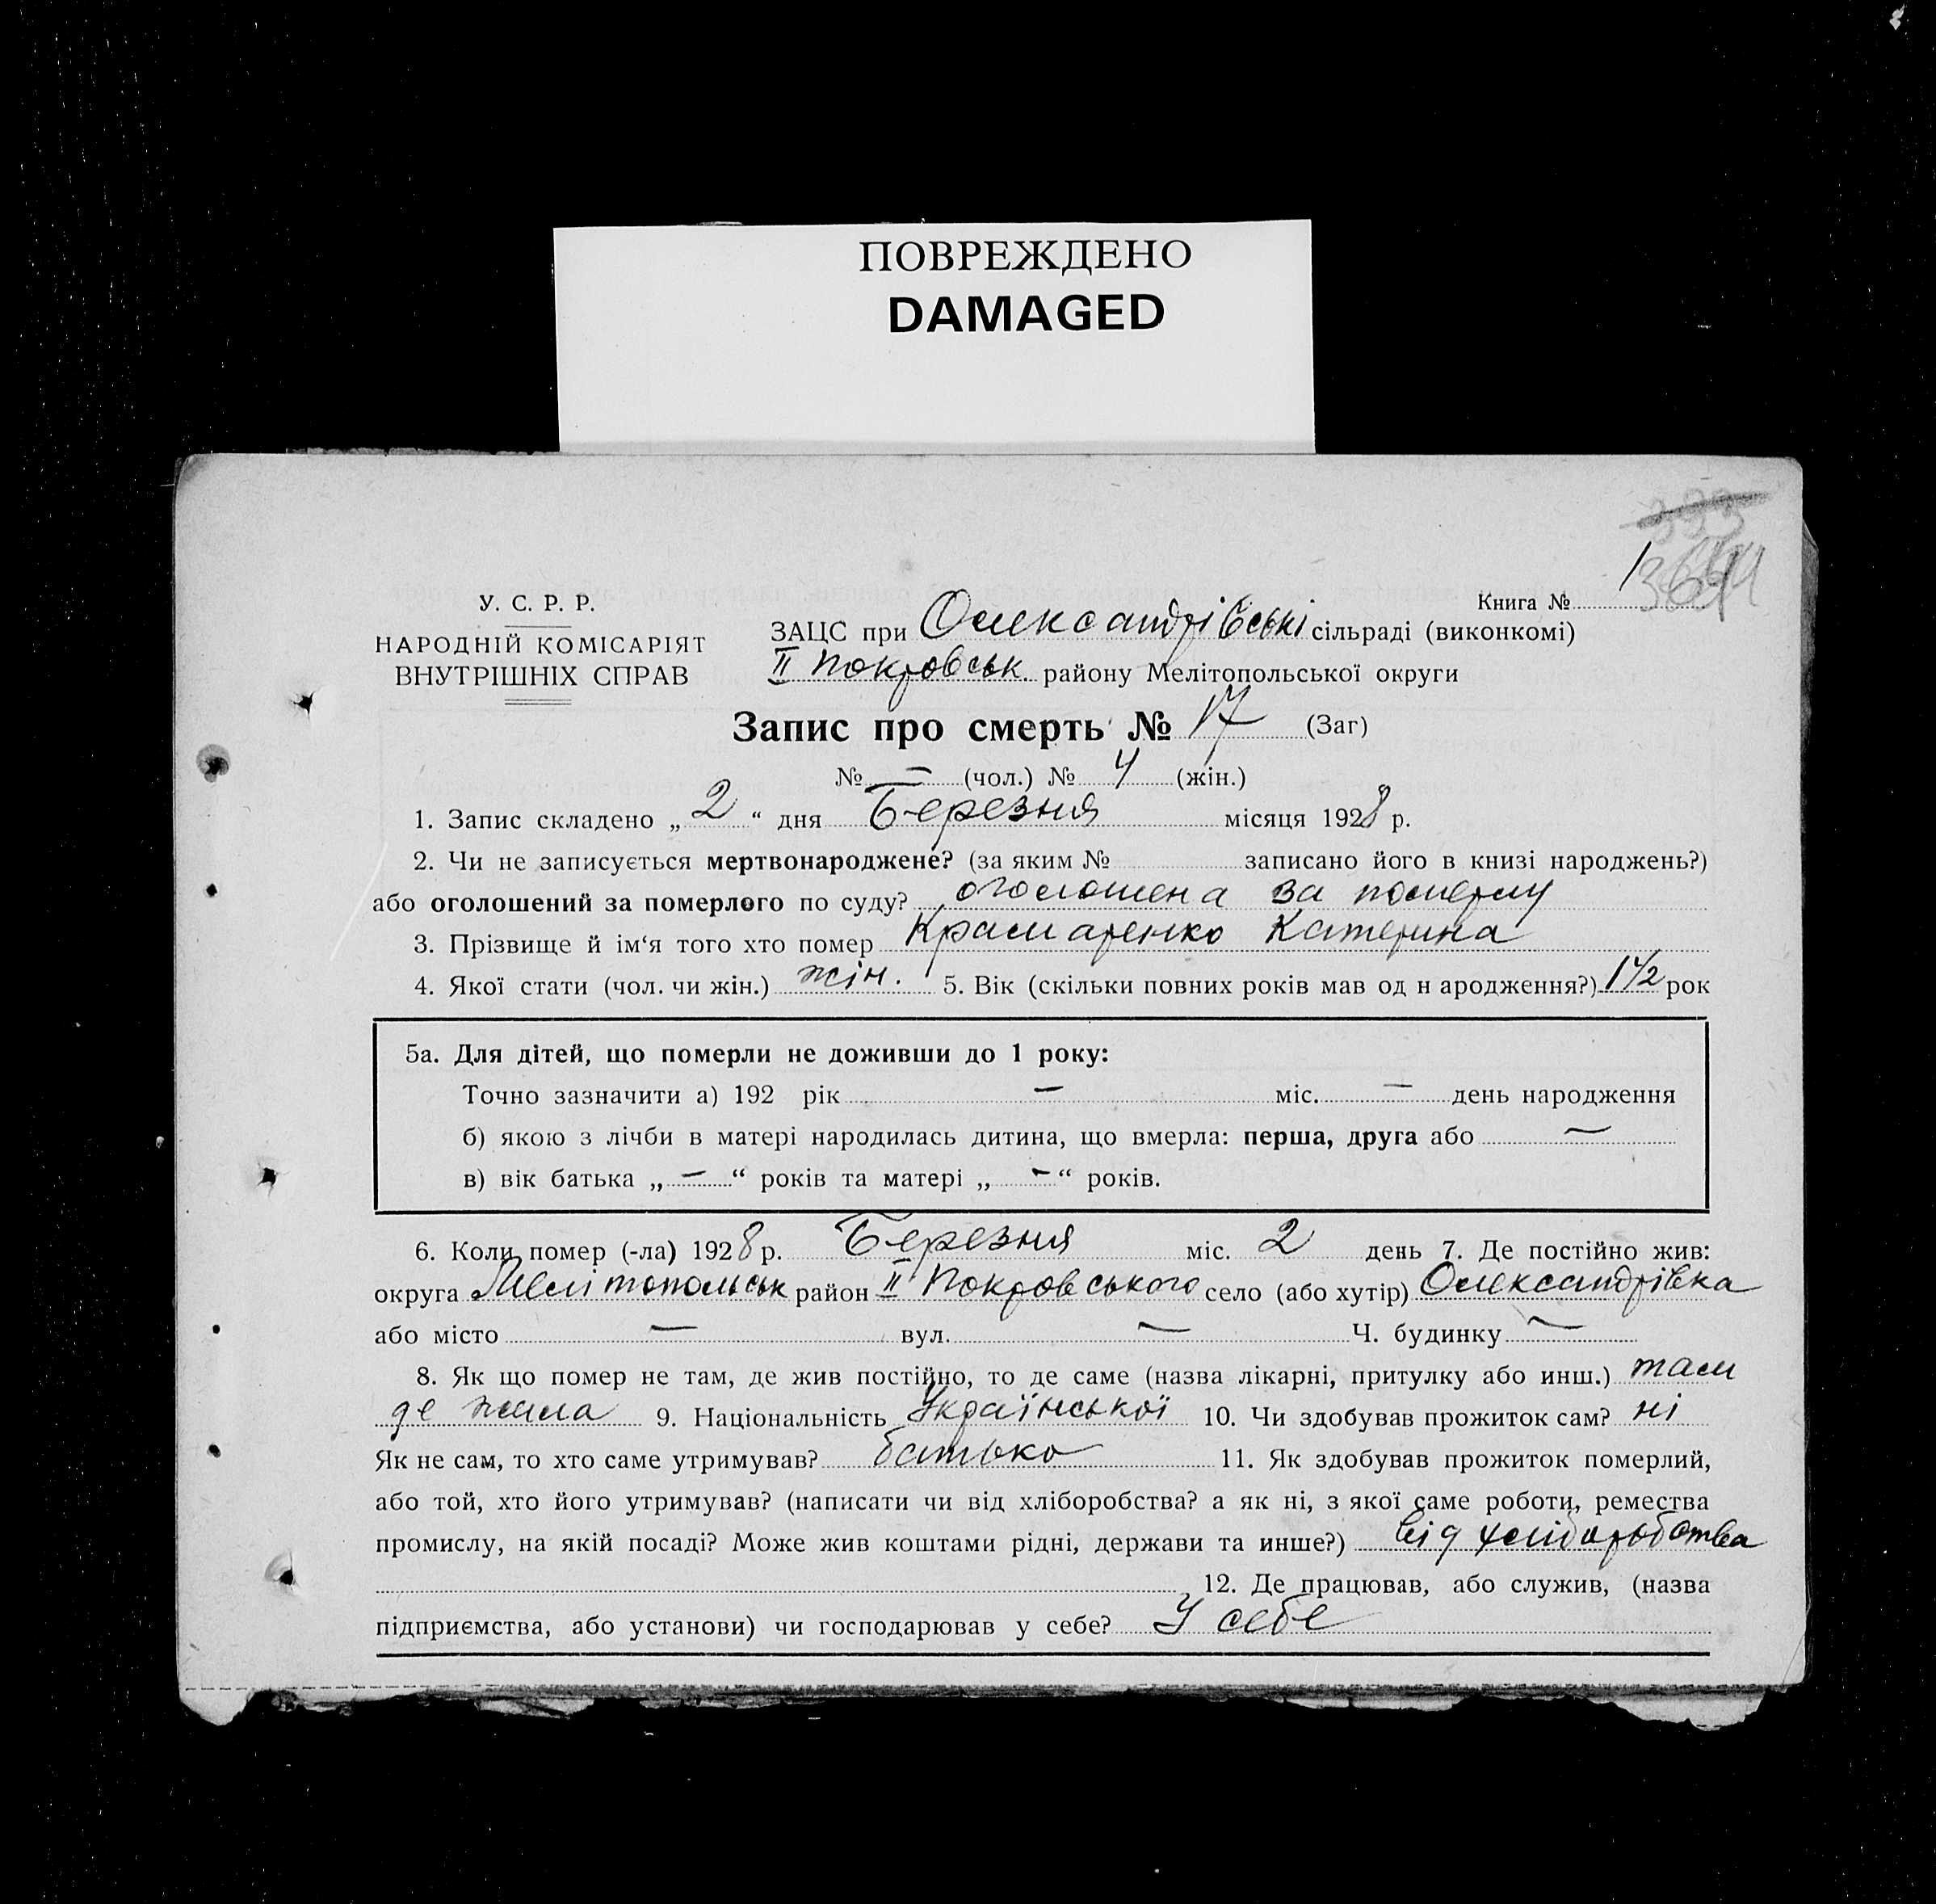 ПОВРЕЖДЕНО
DAMAGED
393
Книга № 1
364
У. С. Р. Р.
НАРОДНІЙ КОМІСАРІЯТ
ВНУТРІШНІХ СПРАВ
ЗАЦС при Олександрівські сільраді (виконкомі)
II Покровськ. району Мелітопольської округи
Запис про смерть № 17 (Заг)
№ — (чол.) № 4 (жін.)
1. Запис складено „ 2 “ дня Березня місяця 1928 р.
2. Чи не записується мертвонароджене? (за яким № записано його в книзі народжень?)
або оголошений за померлого по суду? оголошена за померлу
3. Прізвище й ім‘я того хто помер Крамаренко Катерина
4. Якої стати (чол. чи жін.) жін. 5. Вік (скільки повних років мав од н ародження?) 1 1/2 рок
5а. Для дітей, що померли не доживши до 1 року:
Точно зазначити а) 192 рік — міс. — день народження
б) якою з лічби в матері народилась дитина, що вмерла: перша, друга або —
в) вік батька „ — “ років та матері „ — “ років.
6. Коли помер (-ла) 1928 р. Березня міс. 2 день 7. Де постійно жив:
округа Мелітопольськ район II Покровського село (або хутір) Олександрівка
або місто — вул. — Ч. будинку —
8. Як що помер не там, де жив постійно, то де саме (назва лікарні, притулку або инш.) там
де жила 9. Національність Української 10. Чи здобував прожиток сам? ні
Як не сам, то хто саме утримував? батько 11. Як здобував прожиток померлий,
або той, хто його утримував? (написати чи від хліборобства? а як ні, з якої саме роботи, ремества
промислу, на якій посаді? Може жив коштами рідні, держави та инше?) від хліборобства
12. Де працював, або служив, (назва
підприємства, або установи) чи господарював у себе? У себе